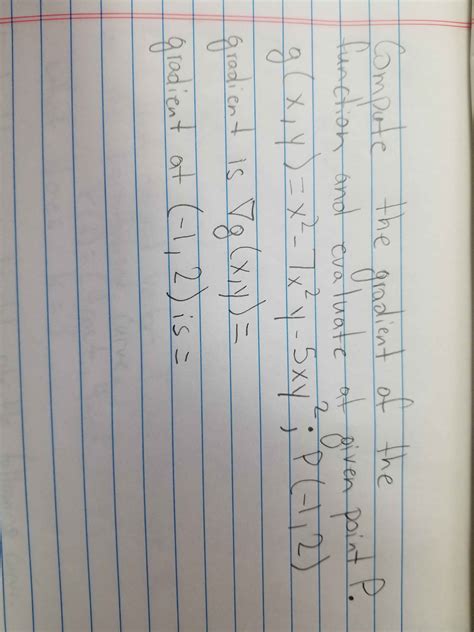 Compute the gradient of the
function and evaluate at given point P.
g(x,y)=x²-7x²y-5xy²; P(-1,2)
gradient is ∇g(x,y)=
gradient at (-1,2) is =